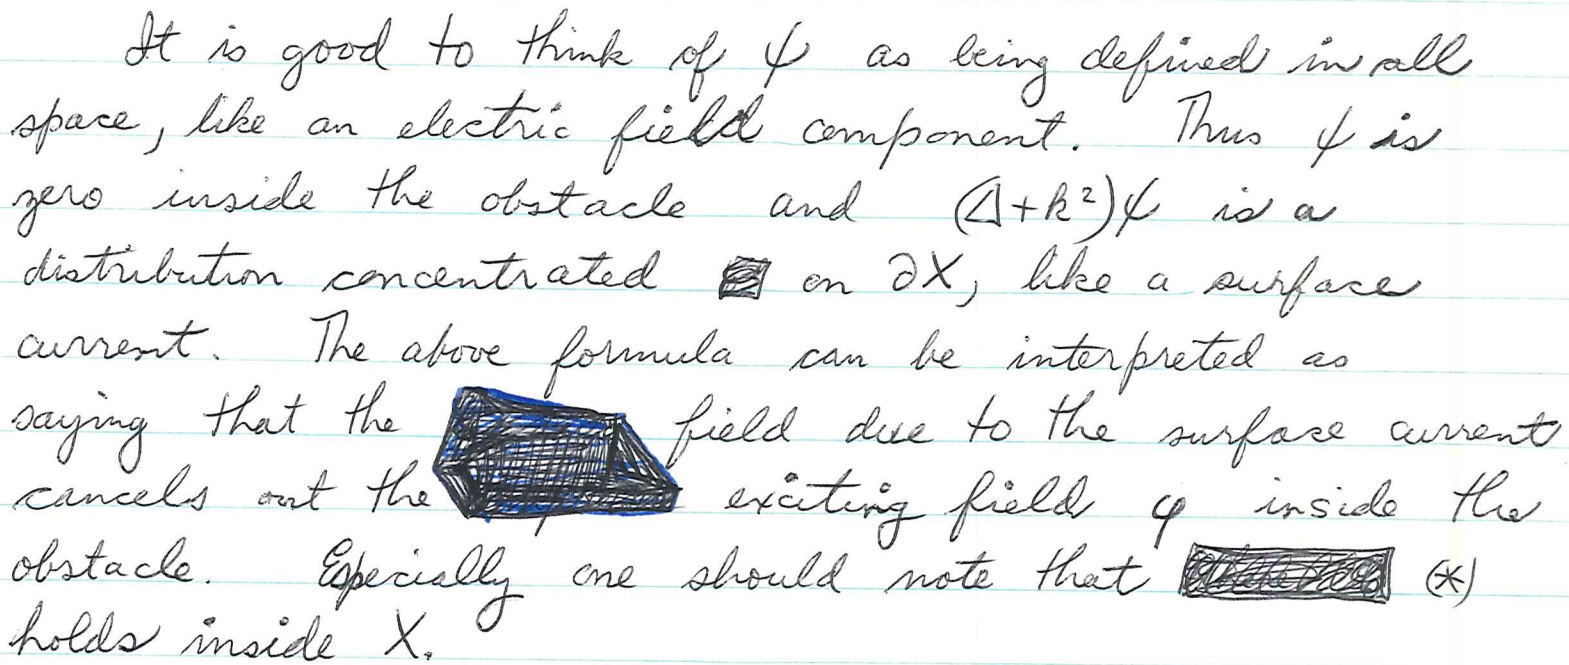 It is good to think of ψ as being defined in all
space, like an electric field component. Thus ψ is
zero inside the obstacle and (Δ+k²)ψ is a
distribution concentrated on ∂X, like a surface
current. The above formula can be interpreted as
saying that the field due to the surface current
cancels out the exciting field φ inside the
obstacle. Especially one should note that (*)
holds inside X.